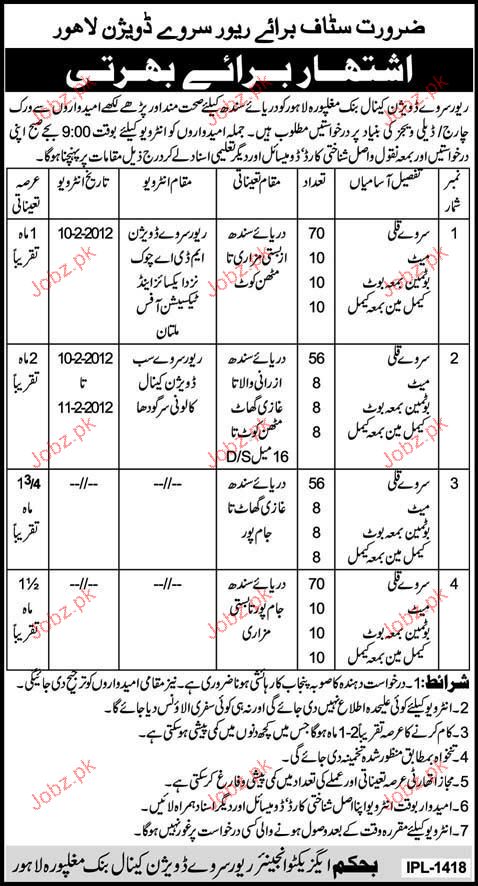 ضرورت سٹاف برائے ریور سروے ڈویژن لاہور
اشتہار برائے بھرتی
ریور سروے ڈویژن کینال بنک مغلپورہ لاہور کو دریائے سندھ کیلئے صحت مند اور پڑھے لکھے امیدواروں سے ورک
چارج/ ڈیلی ویجز کی بنیاد پر درخواستیں مطلوب ہیں۔ جملہ امیدواروں کو انٹرویو کیلئے بوقت 9:00 بجے صبح اپنی
درخواستیں اور بمعہ نقول واصل شناختی کارڈ، ڈومیسائل اور دیگر تعلیمی اسناد لے کر درج ذیل مقامات پر پہنچنا ہوگا۔
نمبر شمار تفصیل آسامیاں تعداد مقام تعیناتی مقام انٹرویو تاریخ انٹرویو عرصہ تعیناتی
1 سروے قلی 70 دریائے سندھ ریور سروے ڈویژن 10-2-2012 1 ماہ
میٹ 10 از بستی مزاری تا ایم ڈی اے چوک تقریباً
بوٹمین بمعہ بوٹ 10 مٹھن کوٹ نزد ایکسائز اینڈ
کیمل مین بمعہ کیمل 10 ٹیکسیشن آفس
ملتان
2 سروے قلی 56 دریائے سندھ ریور سروے سب 10-2-2012 2 ماہ
میٹ 8 از رانی والا تا ڈویژن کینال تا تقریباً
بوٹمین بمعہ بوٹ 8 غازی گھاٹ کالونی سرگودھا 11-2-2012
کیمل مین بمعہ کیمل 8 مٹھن کوٹ تا
16 میل D/S
3 سروے قلی 56 دریائے سندھ --//-- --//-- 1 3/4
میٹ 8 غازی گھاٹ تا ماہ
بوٹمین بمعہ بوٹ 8 جام پور تقریباً
کیمل مین بمعہ کیمل 8
4 سروے قلی 70 دریائے سندھ --//-- --//-- 1½
میٹ 10 جام پور تا بستی ماہ
بوٹمین بمعہ بوٹ 10 مزاری تقریباً
کیمل مین بمعہ کیمل 10
شرائط: 1- درخواست دہندہ کا صوبہ پنجاب کا رہائشی ہونا ضروری ہے۔ نیز مقامی امیدواروں کو ترجیح دی جائیگی۔
2- انٹرویو کیلئے کوئی علیحدہ اطلاع نہیں دی جائے گی اور نہ ہی کوئی سفری الاؤنس دیا جائے گا۔
3- کام کرنے کا عرصہ تقریباً 2-1 ماہ ہوگا جس میں کچھ دنوں میں کمی پیشی ہو سکتی ہے۔
4- تنخواہ بمطابق منظور شدہ تخمینہ دی جائے گی۔
5- مجاز اتھارٹی عرصہ تعیناتی اور عملے کی تعداد میں کمی پیشی و فارغ کر سکتی ہے۔
6- امیدوار بوقت انٹرویو اپنا اصل شناختی کارڈ، ڈومیسائل اور دیگر اسناد ہمراہ لائیں۔
7- انٹرویو کیلئے مقررہ وقت کے بعد وصول ہونے والی کسی درخواست پر غور نہیں ہوگا۔
بحکم ایگزیکٹو انجینئر ریور سروے ڈویژن کینال بنک مغلپورہ لاہور
IPL-1418
Jobz.pk